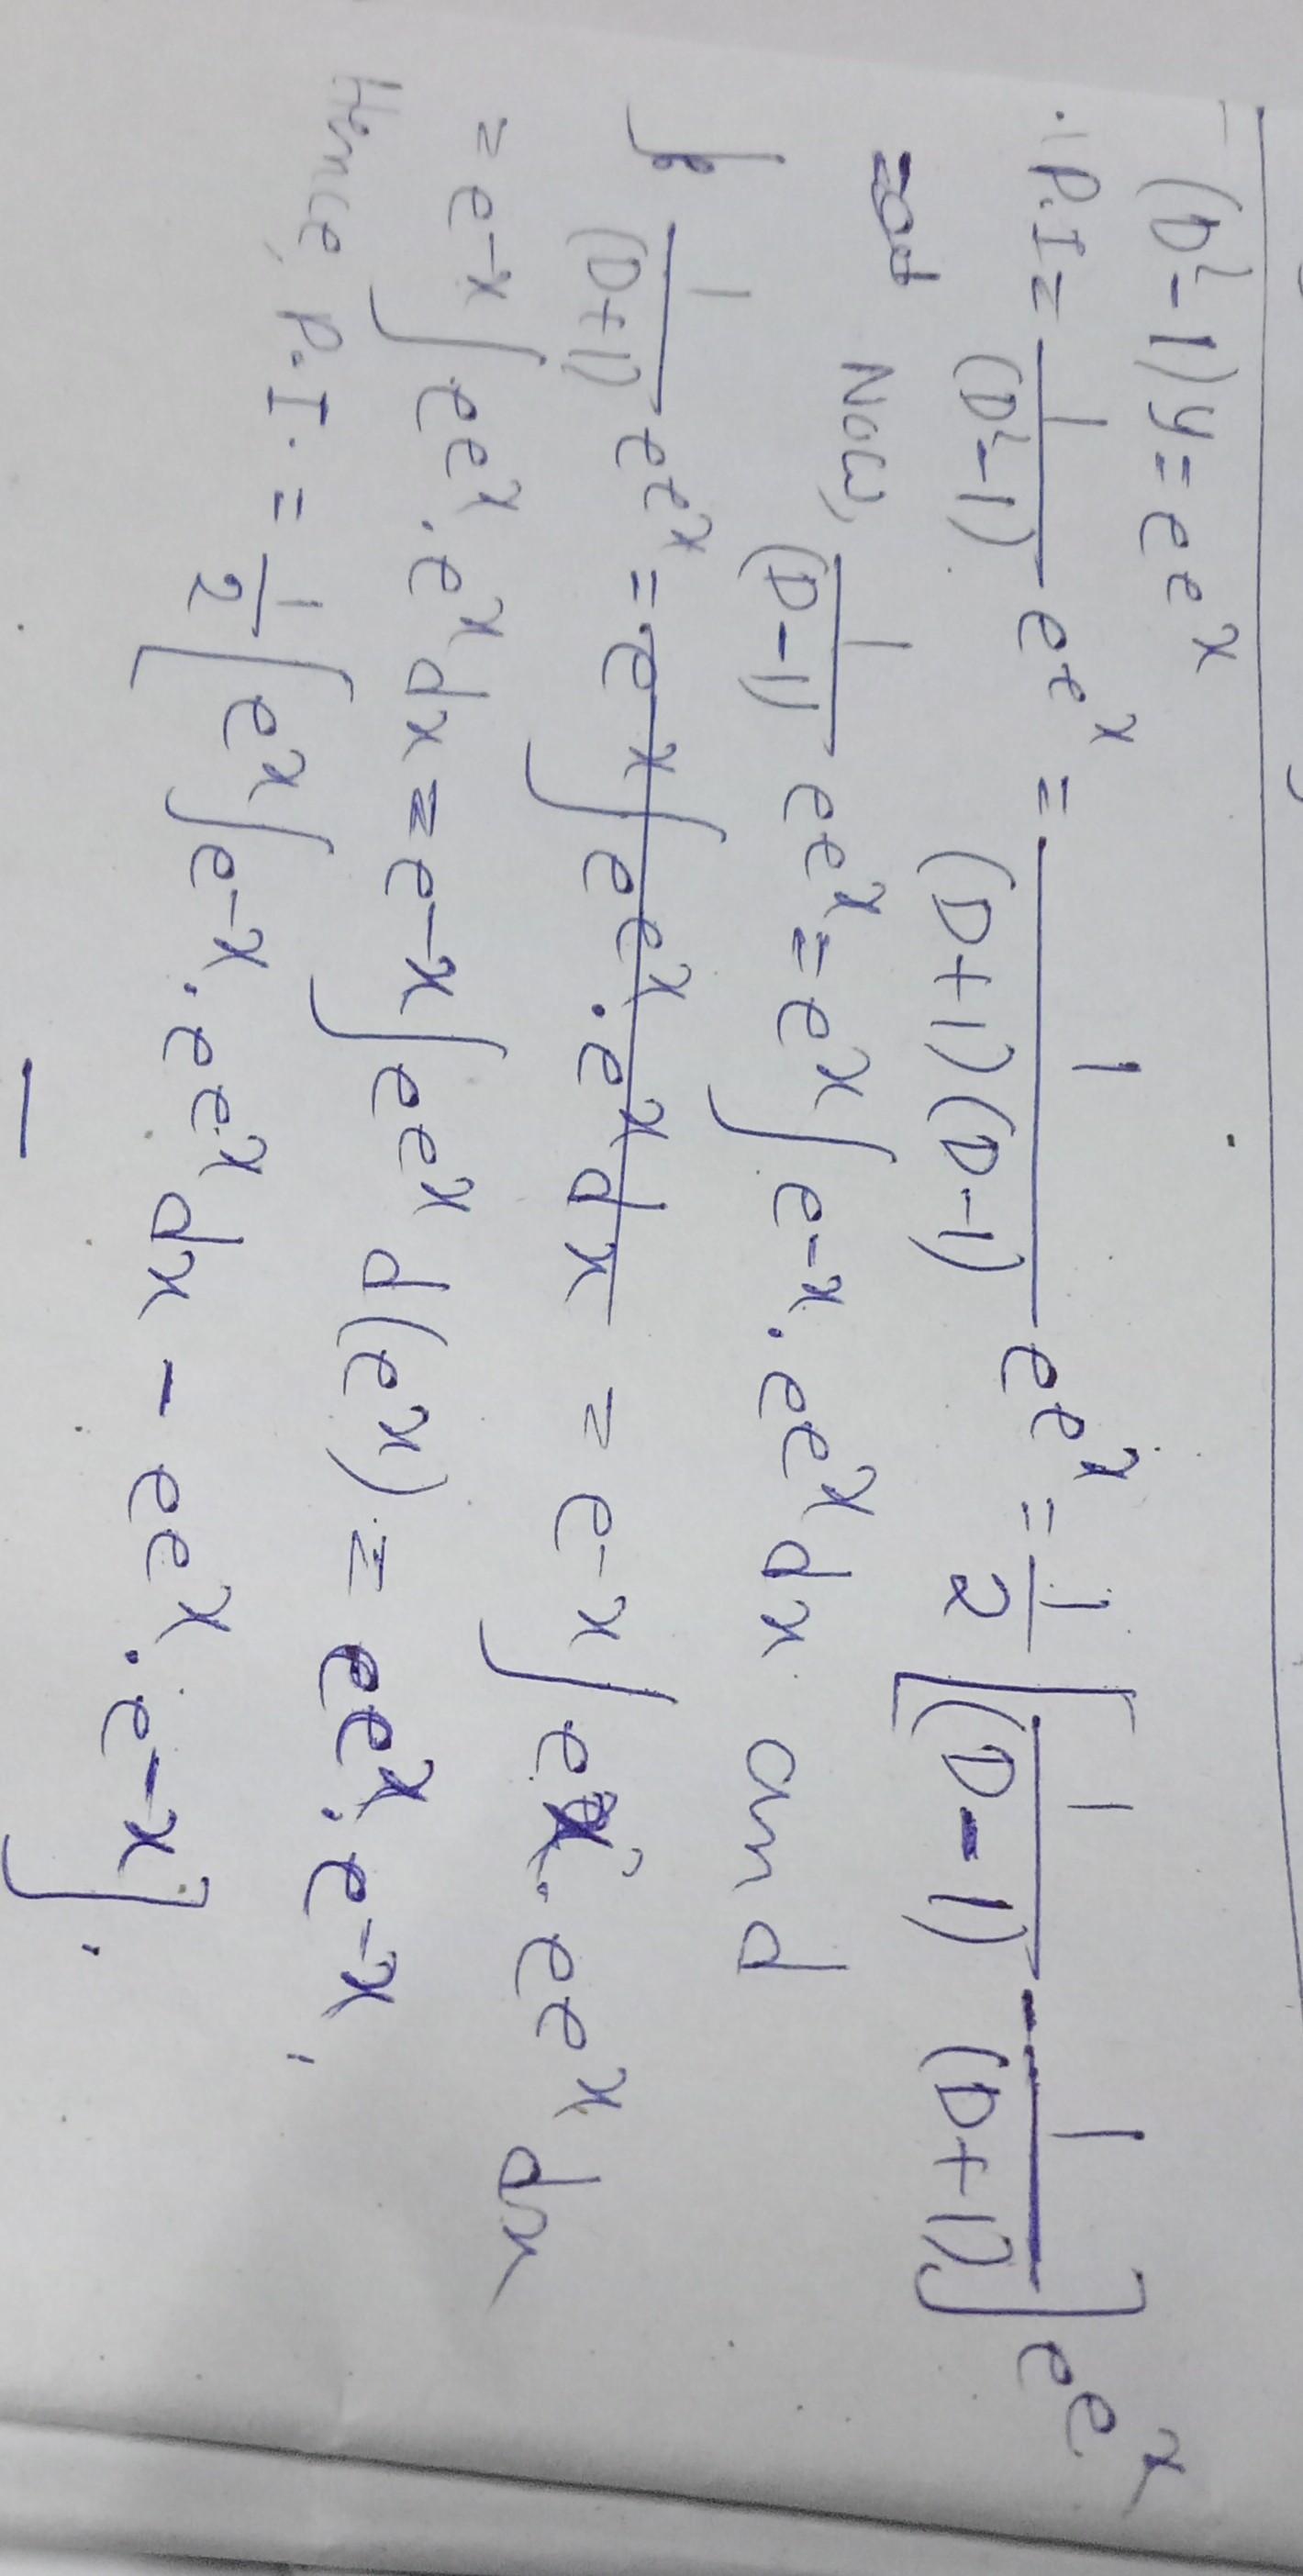 (D²-1)y = e^{e^x}
∴ P.I = \frac{1}{(D²-1)} e^{e^x} = \frac{1}{(D+1)(D-1)} e^{e^x} = \frac{1}{2} [\frac{1}{(D-1)} - \frac{1}{(D+1)}] e^{e^x}
Now, \frac{1}{(D-1)} e^{e^x} = e^x ∫ e^{-x} . e^{e^x} dx and
\frac{1}{(D+1)} e^{e^x} = e^{-x} ∫ e^{e^x} . e^x dx = e^{-x} ∫ e^x . e^{e^x} dx
= e^{-x} ∫ e^{e^x} . e^x dx = e^{-x} ∫ e^{e^x} d(e^x) = e^{e^x} . e^{-x} .
Hence, P.I. = \frac{1}{2} [e^x ∫ e^{-x} . e^{e^x} dx - e^{e^x} . e^{-x}] .